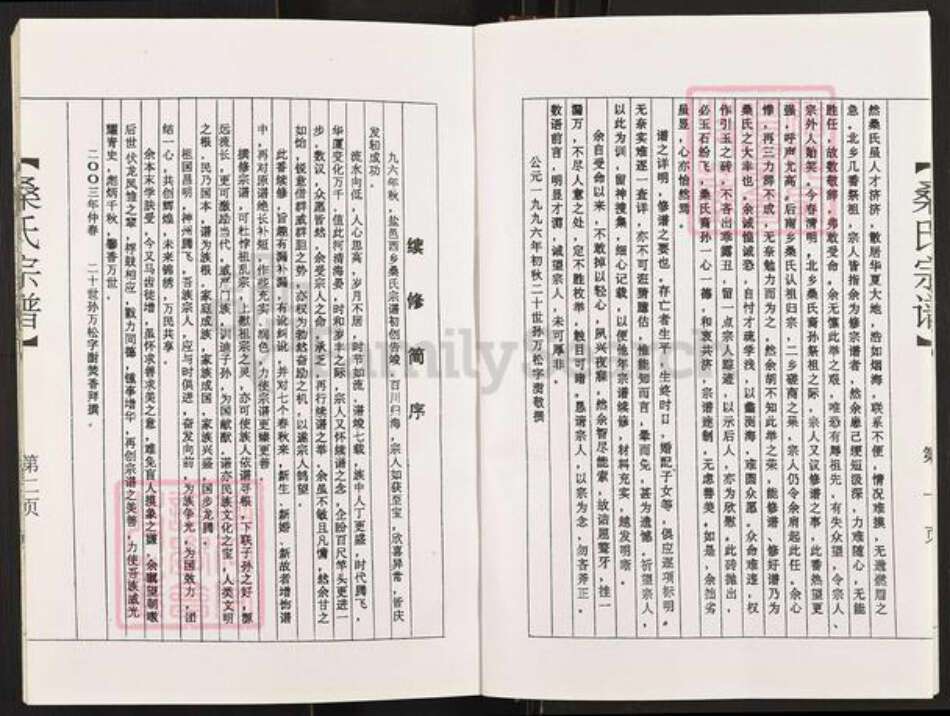 【桑氏宗谱】
第一页
然桑氏虽人才济济，散居华夏大地，浩如烟海，联系不便，情况难摸，无
急，北乡几番祭祖，宗人皆指余为修宗谱者，然余虑己绠短汲深，力难随心，无能
胜任，故数敬敬辞，弗敢受命，余无愧此举之艰，唯恐有辱祖先，有失众望，令宗人、
宗外人贻笑。今春清明，北乡桑氏裔孙祭祖之际，宗人又议修谱之事，此番热望更
强，呼声尤高。后南乡桑氏认祖归宗，二乡磋商之果，宗人仍令余肩起此任，余心
悸，再三力辞不成，无奈勉力而为之，然余胡不知此举之荣，能修谱、修好谱乃为
桑氏之大幸也，余诚惶诚恐，自忖才疏学浅，以蠡测海，难圆众愿，众命难违，权
作引玉之砖，不吝出乖露丑，留一点宗人踪迹，以示后人，亦为欣慰，此砖抛出，
必玉石纷飞，桑氏裔孙一心一德，和衷共济，宗谱速制，无虑善美，如是，余拙劣
虽显，心亦怡然焉。
谱之详明，修谱之要也，存亡者生平，生终时日，婚配子女等，俱应逐项标明。
无奈实难逐一查详，亦不可诳猜臆估，惟能知而言，晕而免，甚为遗憾，祈望宗人，
以此为训，留神搜集，细心记载，以便他年宗谱续修，材料充实，越发明晰。
余自受命以来，不敢掉以轻心，夙兴夜寐，然余智尽能索，故诘屈聱牙，挂一
漏万，不尽人意之处，定不胜枚举，触目可睹，恳请宗人，以宗为念，勿吝斧正。
数语前言，明显才涸，诚望宗人，未可厚非。
公元一九九六年初秋二十世孙万松字澍敬撰
续修简序
九六年秋，盐邑西乡桑氏宗谱初创告竣，百川归海，宗人如获至宝，欣喜异常，皆庆
发轫成功。
流水向低，人心思高，岁月不居，时节如流，谱竣七载，族中人丁更盛，时代腾飞，
华厦变化万千，值此河清海晏，时和岁丰之际，宗人又怀续谱之念，企盼百尺竿头更进一
步，数议，众愿皆然，余受宗人之命，承乏、再行续谱之举，余虽不敏且凡庸，然余甘之
如饴，锐意借群威群胆之势，亦权为勃然奋励之机，以遂宗人鹤望。
此番续修，旨趣有漏补漏，有讹纠讹，并对七个春秋来，新生、新婚、新故者增饰谱
中，再对原谱绝长补短，作些充实、润色，力使宗谱更臻更善。
撰修宗谱，可杜悖祖乱宗，上慰祖宗之灵，亦可使族人依谱寻根，下联子孙之好，源
远流长，更可激励当代，威严门族，训迪子孙，为国献猷，谱亦民族文化之宝，人类文明
之根，民乃国本，谱为族根，家庭成族，家族成国，家族兴盛，国步龙腾。
祖国昌明，神州腾飞，吾族宗人，应与时俱进，奋发向前，为族争光，为国效力，团
结一心，共创辉煌，未来锦绣，万民共享。
余本末学肤受，今又马齿徒增，虽怀求善求美之意，难免盲人摸象之嫌，余瞩望朝暾
后世伏龙凤雏之辈，桴鼓相应，戮力同德，镇事增华，再创宗谱之美善，力使吾族威光
耀青史，彪炳千秋，馨香万世。
二〇〇三年仲春　二十世孙万松字澍焚香拜撰。
【桑氏宗谱】
第二页
FamilySearch